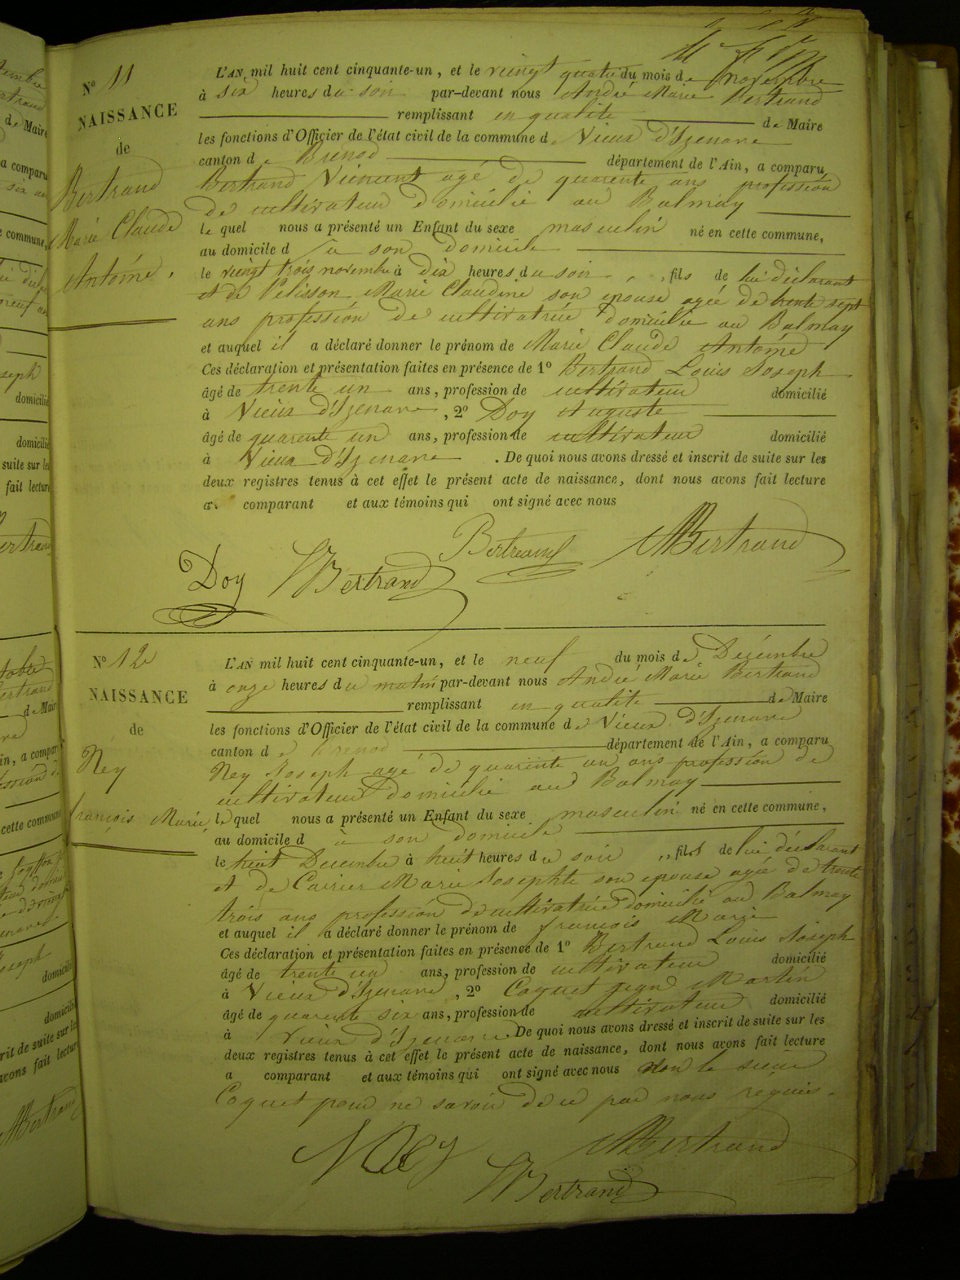 N° 11
NAISSANCE
de
Bertrand
Marie Claude
Antoine.
L'AN mil huit cent cinquante-un, et le vingt quatre du mois de novembre
à six heures du soir par-devant nous André Marie Bertrand
remplissant en qualité de Maire
les fonctions d'Officier de l'état civil de la commune de Vieux d'Izenave
canton de Brenod département de l'Ain, a comparu
Bertrand Vincent agé de quarente ans profession
de cultivateur domicilié au Balmay
le quel nous a présenté un Enfant du sexe masculin né en cette commune,
au domicile d à son domicile
le vingt trois novembre à dix heures du soir, fils de lui déclarant
et de Pélisson Marie Claudine son épouse agée de trente sept
ans profession de cultivatrice domiciliée au Balmay
et auquel il a déclaré donner le prénom de Marie Claude Antoine
Ces déclaration et présentation faites en présence de 1° Bertrand Louis Joseph
âgé de trente un ans, profession de cultivateur domicilié
à Vieux d'Izenave, 2° Doy Auguste
âgé de quarente un ans, profession de cultivateur domicilié
à Vieux d'Izenave. De quoi nous avons dressé et inscrit de suite sur les
deux registres tenus à cet effet le présent acte de naissance, dont nous avons fait lecture
a comparant et aux témoins qui ont signé avec nous
Doy Bertrand Bertrand Bertrand
N° 12
NAISSANCE
de
Ney
françois Marie
L'AN mil huit cent cinquante-un, et le neuf du mois de Décembre
à onze heures du matin par-devant nous André Marie Bertrand
remplissant en qualité de Maire
les fonctions d'Officier de l'état civil de la commune de Vieux d'Izenave
canton de Brenod département de l'Ain, a comparu
Ney Joseph agé de quarente un ans profession de
cultivateur domicilié au Balmay
le quel nous a présenté un Enfant du sexe masculin né en cette commune,
au domicile d à son domicile
le huit Décembre à huit heures du soir, fils de lui déclarant
et de Carrier Marie Josephte son épouse agée de trente
trois ans profession de cultivatrice domicilié au Balmay
et auquel il a déclaré donner le prénom de françois Marie
Ces déclaration et présentation faites en présence de 1° Bertrand Louis Joseph
âgé de trente un ans, profession de cultivateur domicilié
à Vieux d'Izenave, 2° Coquet Martin
âgé de quarente six ans, profession de cultivateur domicilié
à vieux d'Izenave De quoi nous avons dressé et inscrit de suite sur les
deux registres tenus à cet effet le présent acte de naissance, dont nous avons fait lecture
a comparant et aux témoins qui ont signé avec nous non le sieur
Coquet pour ne savoir de ce par nous requis.
Ney Bertrand
Bertrand